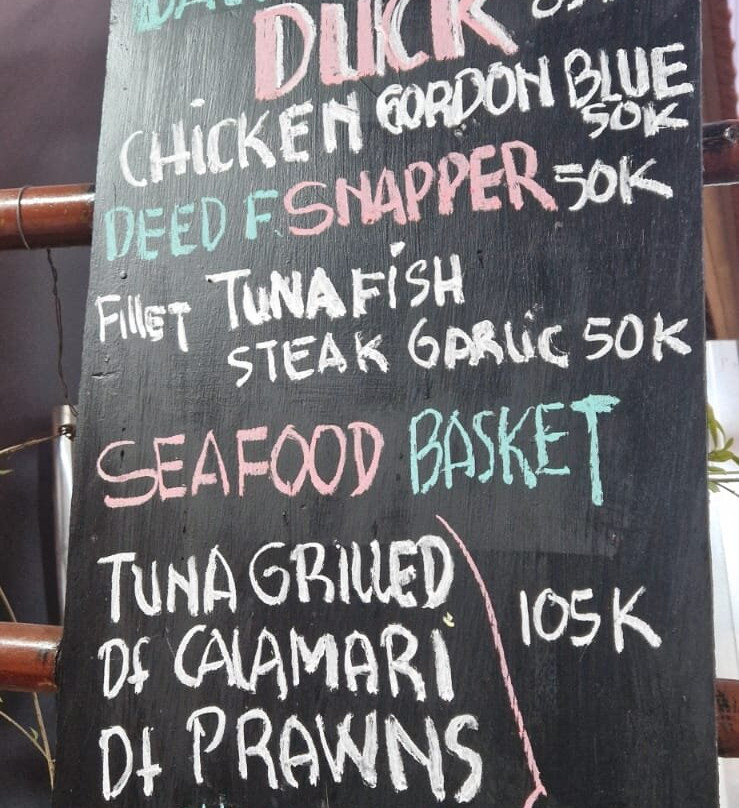 DUCK
CHiCKEN GORDON BLUE
50K
DEED F. SNAPPER 50K
FillET TUNA FiSH
STEAK GARLiC 50K
SEAFOOD BASKET
TUNA GRILLED
Df CALAMARI 105K
Df PRAWNS